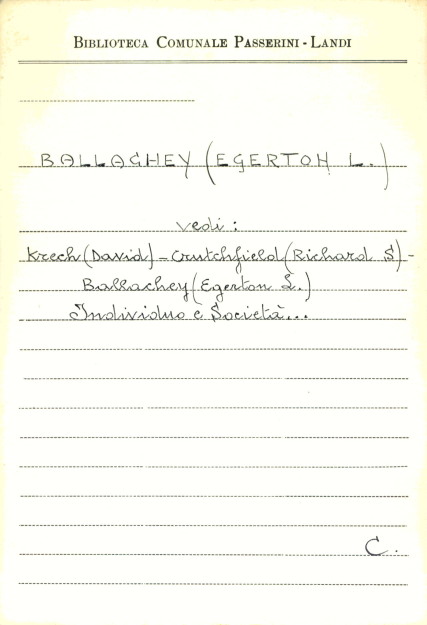 BIBLIOTECA COMUNALE PASSERINI - LANDI
BALLACHEY (EGERTON L.)
vedi :
Krech (David) - Crutchfield (Richard S) -
Ballachey (Egerton L.)
Individuo e Società...
C.